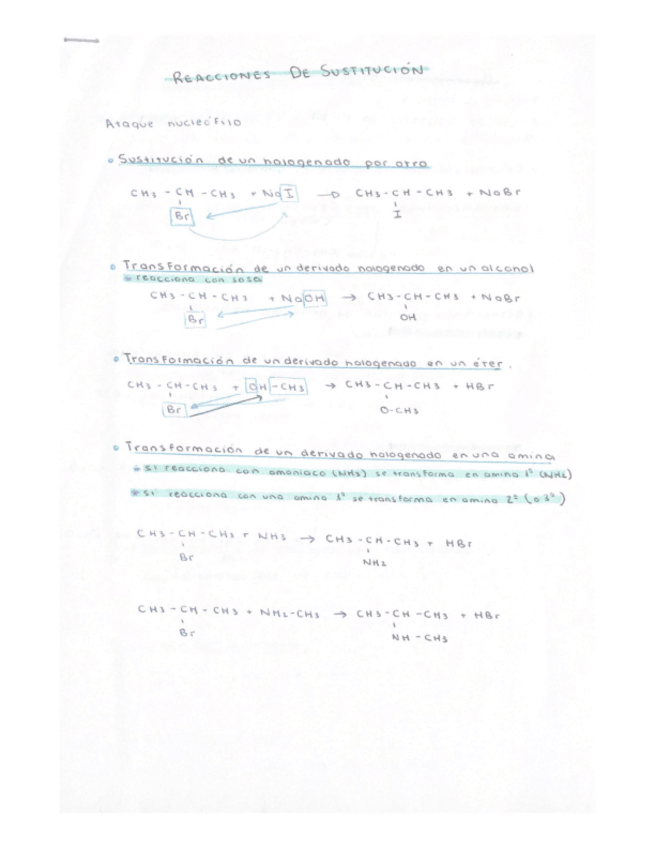 REACCIONES DE SUSTITUCIÓN
Ataque nucleófilo
• Sustitución de un halogenado por otro
CH3 - CH - CH3 + NaI → CH3 - CH - CH3 + NaBr
Br I
• Transformación de un derivado halogenado en un alcohol
* reacciona con sosa
CH3 - CH - CH3 + NaOH → CH3 - CH - CH3 + NaBr
Br OH
• Transformación de un derivado halogenado en un éter.
CH3 - CH - CH3 + OH - CH3 → CH3 - CH - CH3 + HBr
Br O-CH3
• Transformación de un derivado halogenado en una amina
* si reacciona con amoniaco (NH3) se transforma en amina 1ª (NH2)
* si reacciona con una amina 1ª se transforma en amina 2ª (o 3ª)
CH3 - CH - CH3 + NH3 → CH3 - CH - CH3 + HBr
Br NH2
CH3 - CH - CH3 + NH2-CH3 → CH3 - CH - CH3 + HBr
Br NH - CH3